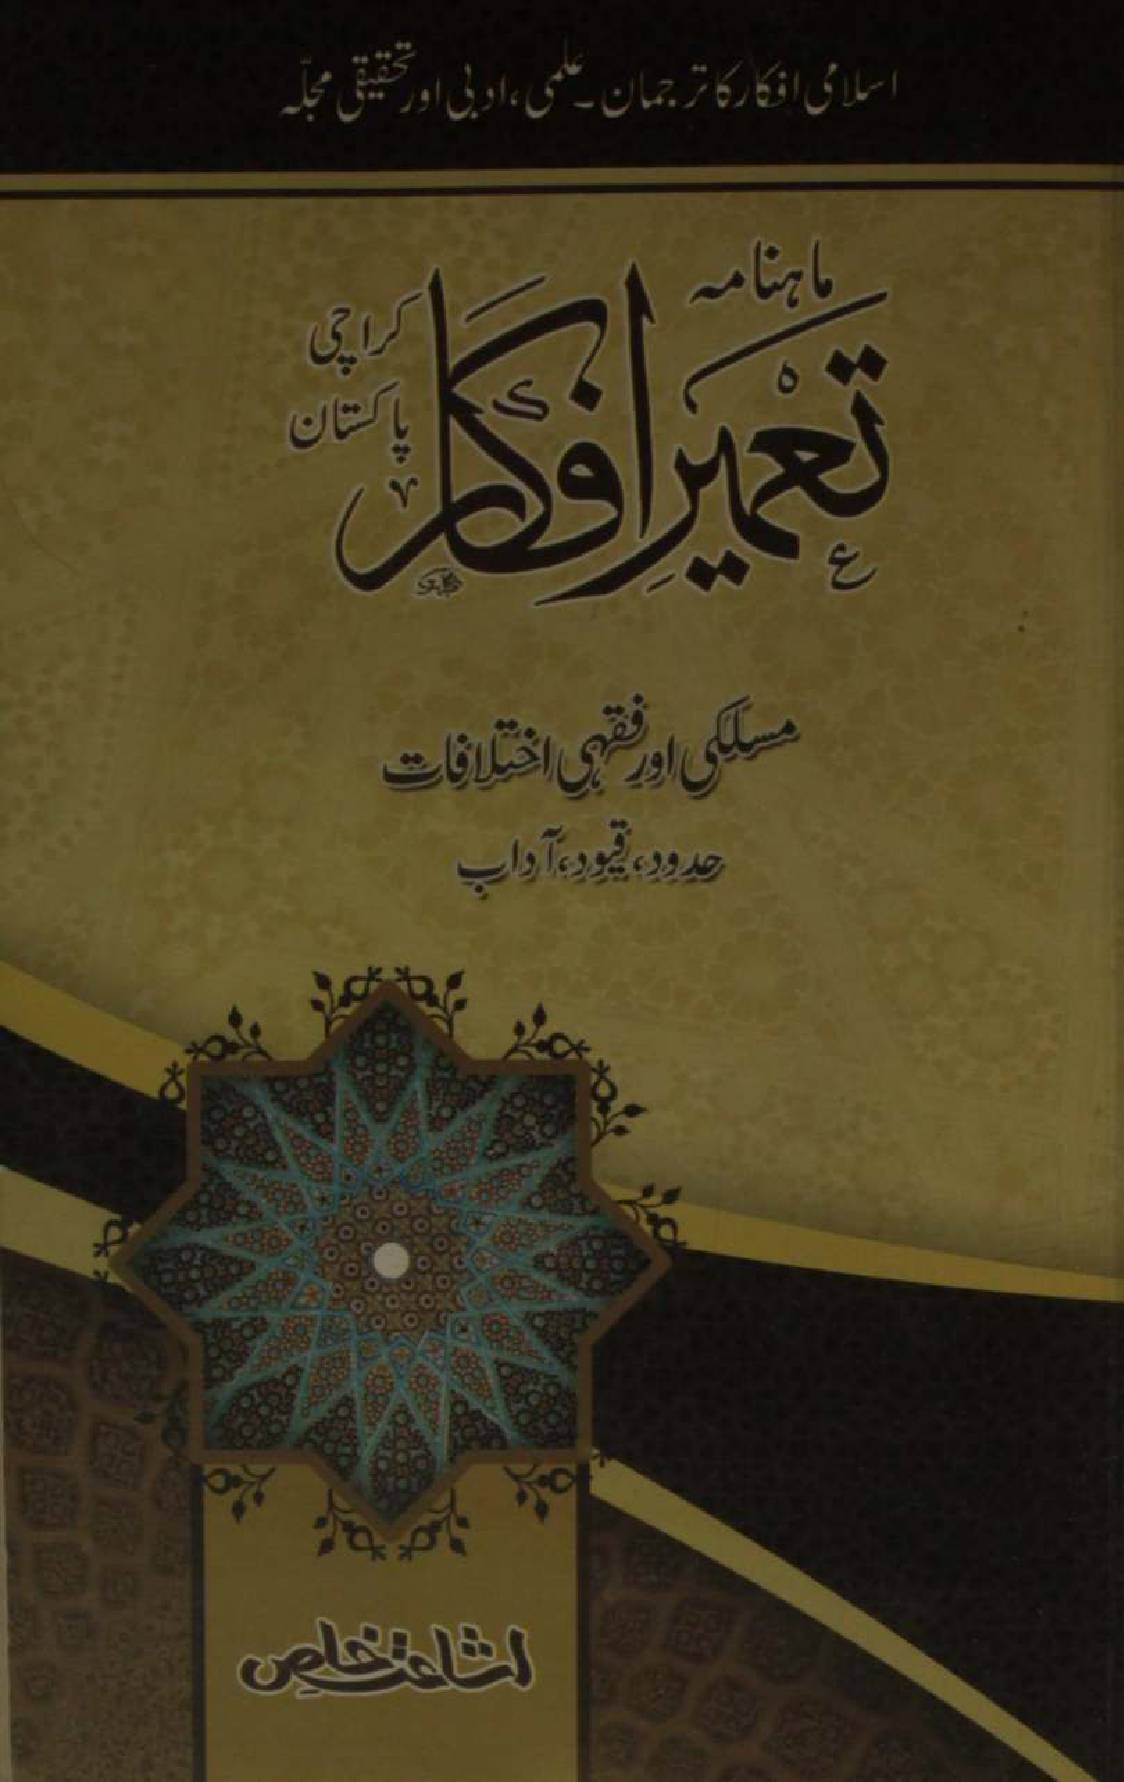 اسلامی افکار کا ترجمان۔ علمی، ادبی اور تحقیقی مجلّہ
ماہنامہ
تعمیرِ افکار
کراچی
پاکستان
مسلکی اور فقہی اختلافات
حدود، قیود، آداب
اشاعتِ خاص